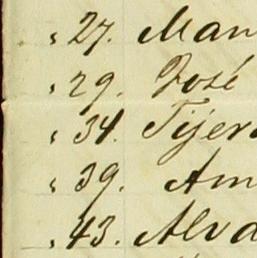 " 27. Man
" 29. José
" 34. Tijer
" 39. Am
" 43. Alva